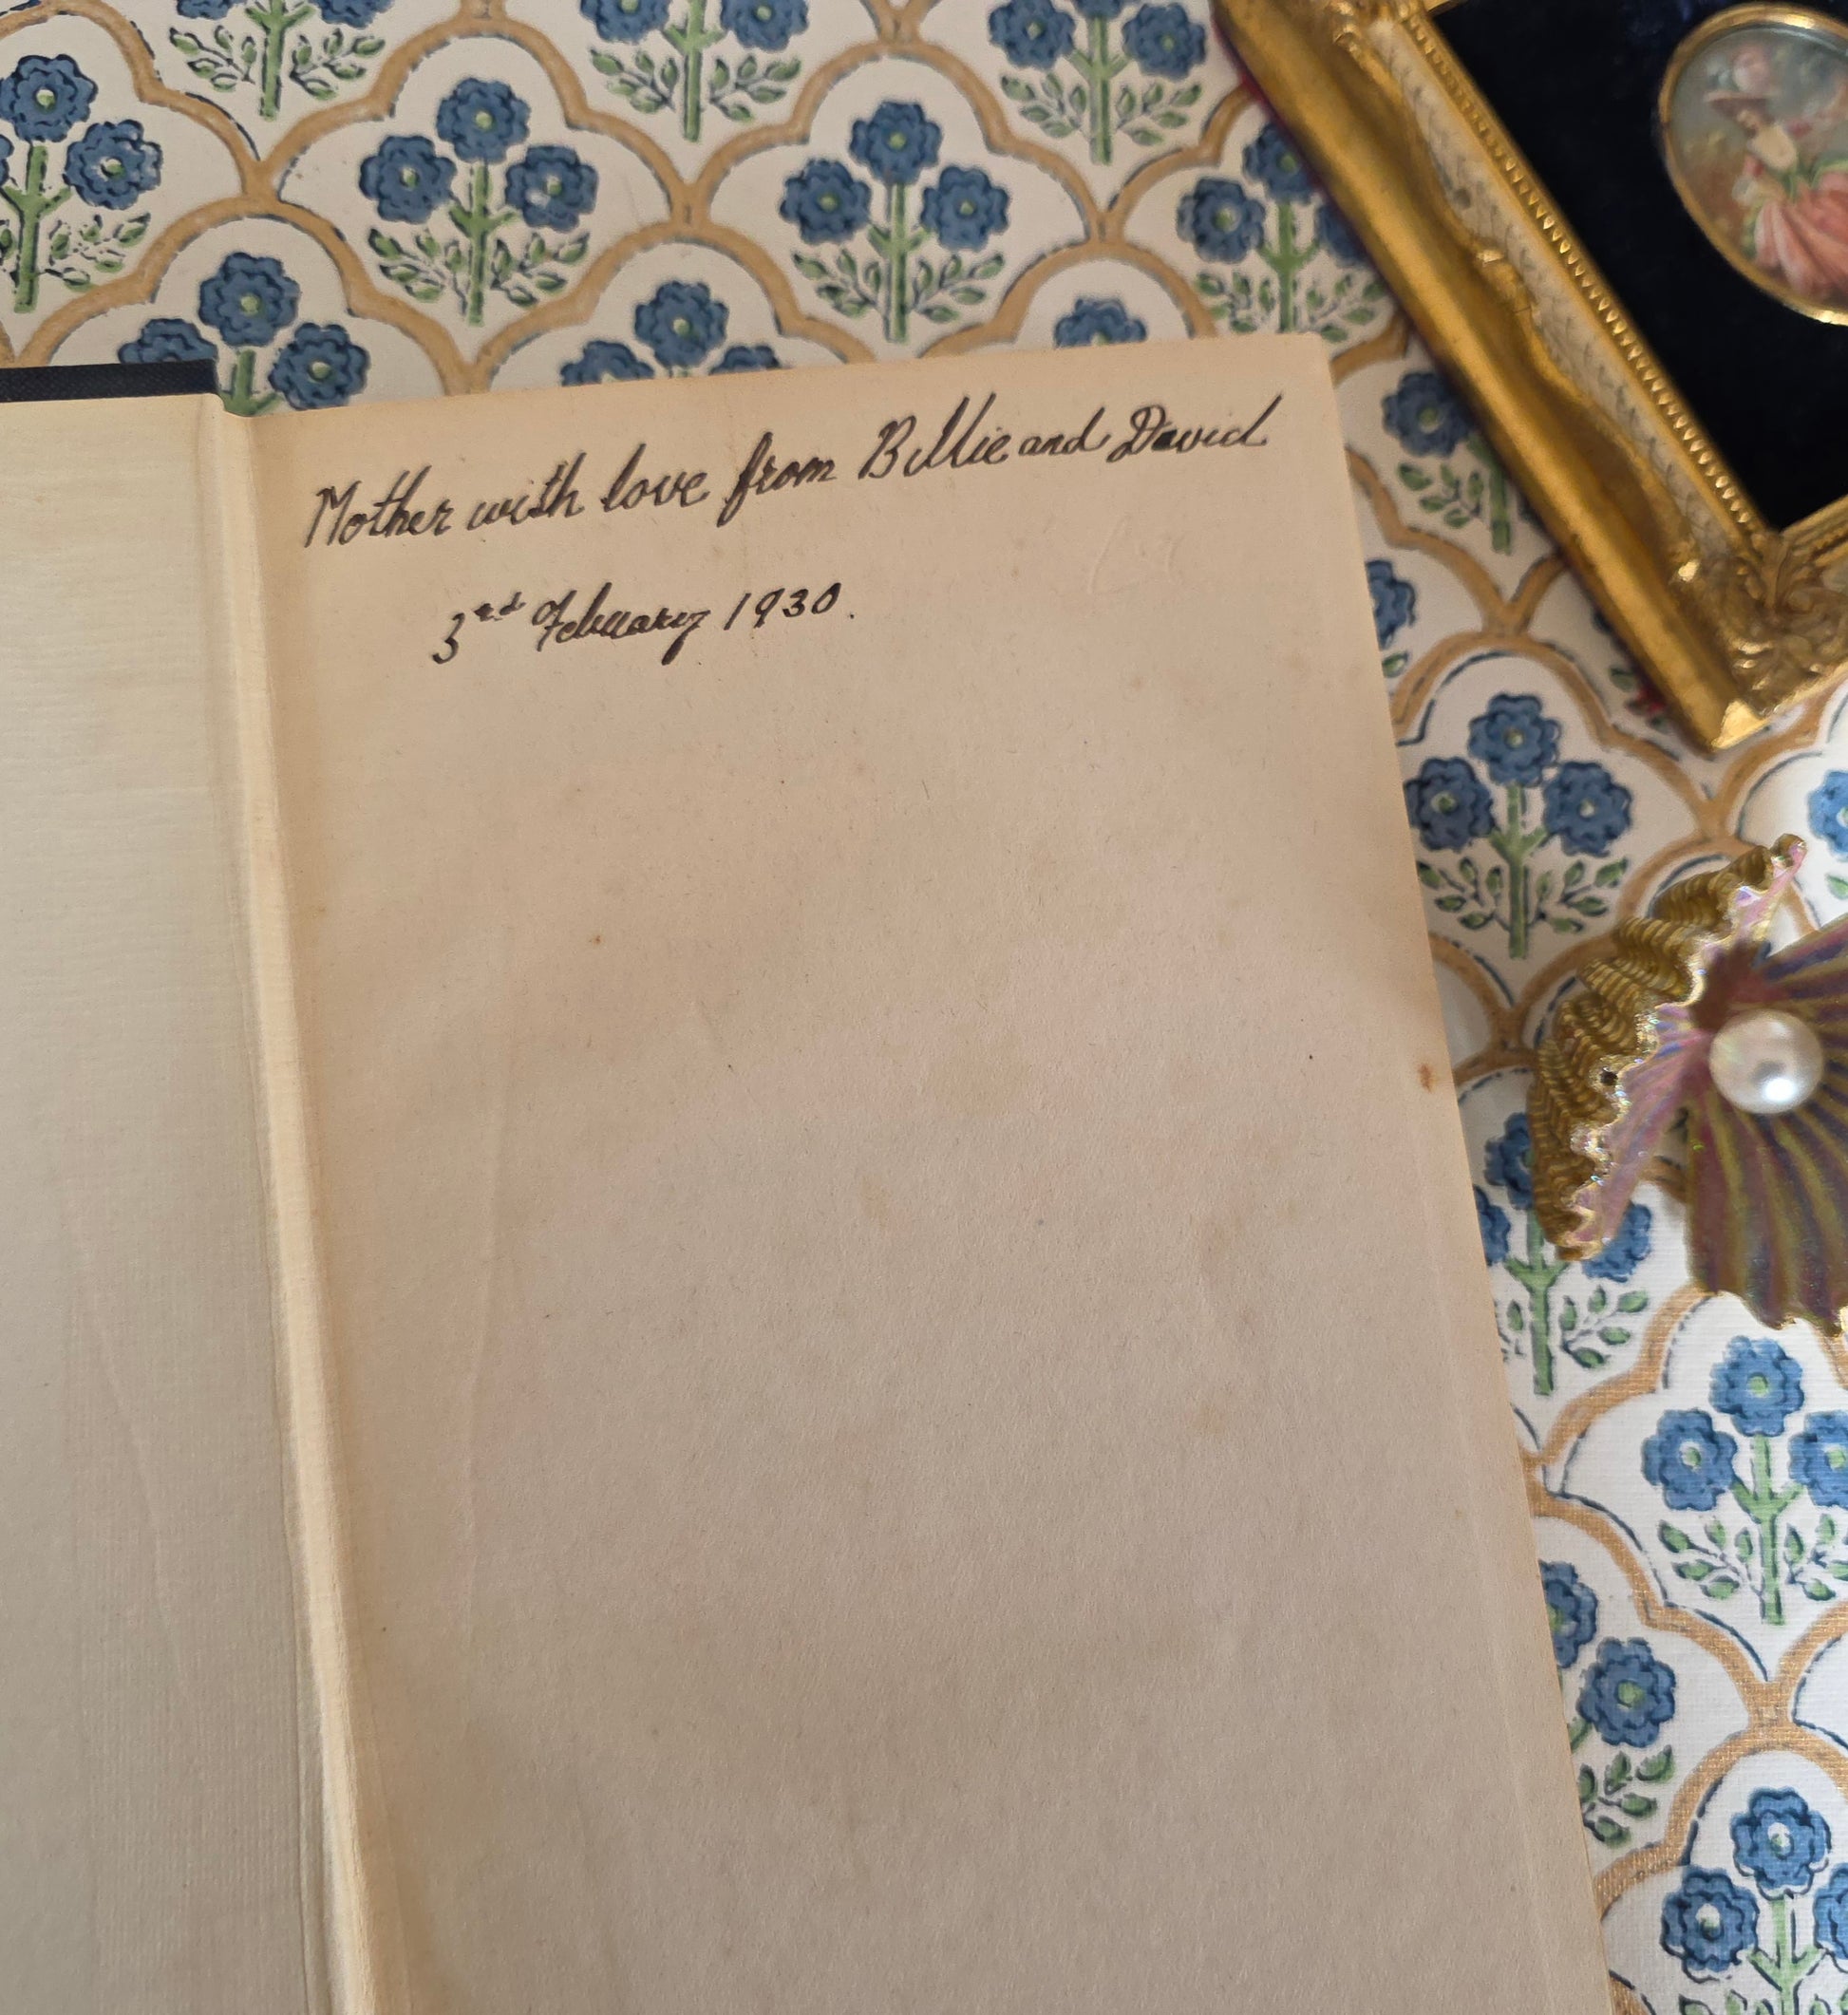 Mother with love from Billie and David
3rd February 1930.